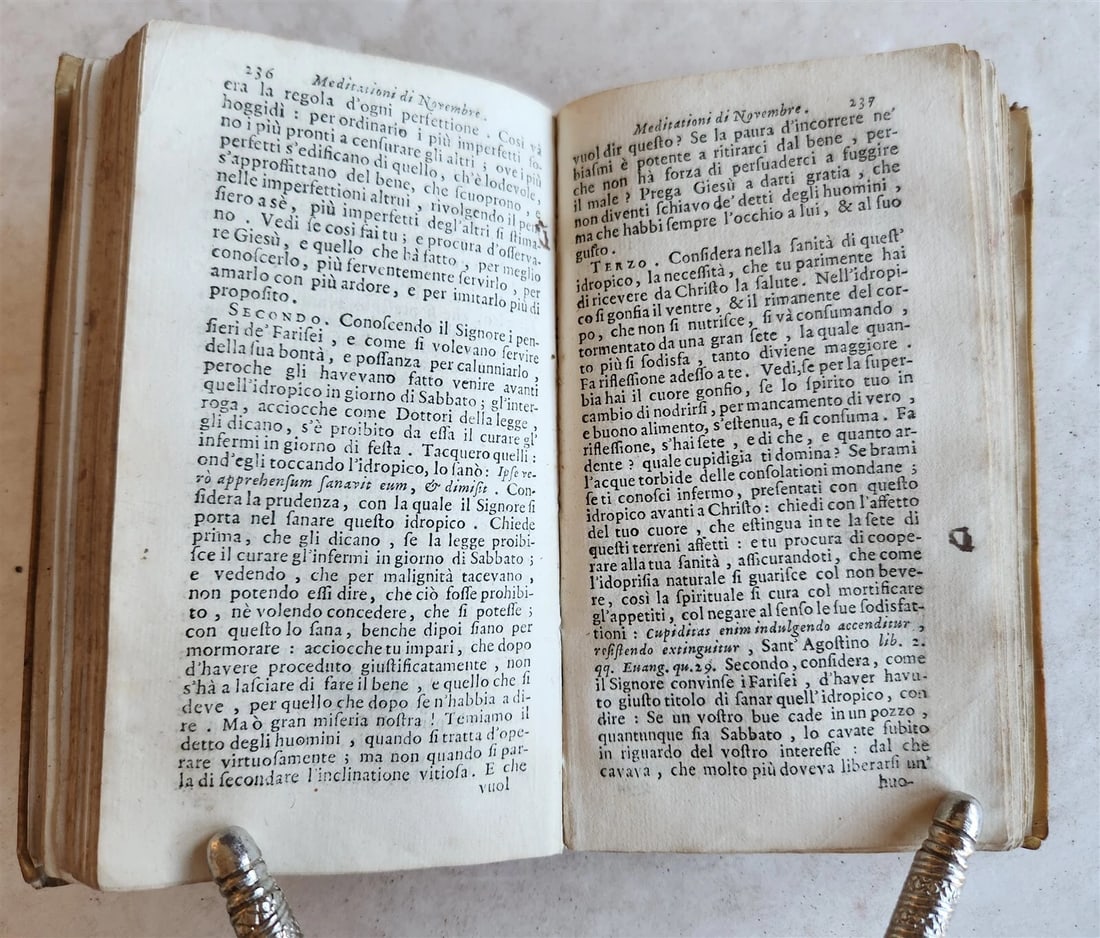 236 Meditationi di Novembre.
era la regola d'ogni perfettione . Così và
hoggidì : per ordinario i più imperfetti ſo-
no i più pronti a cenſurare gli altri ; ove i più
perfetti s'edificano di quello, ch'è lodevole,
s'approfittano del bene, che ſcuoprono , e
nelle imperfettioni altrui , rivolgendo il pen-
ſiero a sè, più imperfetti degl'altri ſi ſtima-
no . Vedi ſe così fai tu ; e procura d'oſſerva-
re Giesù, e quello che hà fatto , per meglio
conoſcerlo, più ferventemente ſervirlo , per
amarlo con più ardore, e per imitarlo più di
propoſito.
SECONDO. Conoſcendo il Signore i pen-
ſieri de' Fariſei , e come ſi volevano ſervire
della ſua bontà, e poſſanza per calunniarlo ,
peroche gli havevano fatto venire avanti
quell'idropico in giorno di Sabbato ; gl'inter-
roga , acciocche come Dottori della legge ,
gli dicano, s'è proibito da eſſa il curare gl'
infermi in giorno di feſta . Tacquero quelli :
ond'egli toccando l'idropico, lo ſanò: Ipſe ve-
rò apprehenſum ſanavit eum, & dimiſit . Con-
ſidera la prudenza, con la quale il Signore ſi
porta nel ſanare queſto idropico . Chiede
prima, che gli dicano , ſe la legge proibi-
ſce il curare gl'infermi in giorno di Sabbato ;
e vedendo , che per malignità tacevano ,
non potendo eſſi dire, che ciò foſſe prohibi-
to , nè volendo concedere, che ſi poteſſe ;
con queſto lo ſana, benche dipoi ſiano per
mormorare : acciocche tu impari, che dopo
d'havere proceduto giuſtificatamente , non
s'hà a laſciare di fare il bene , e quello che ſi
deve , per quello che dopo ſe n'habbia a di-
re . Ma ò gran miſeria noſtra ! Temiamo il
detto degli huomini , quando ſi tratta d'ope-
rare virtuoſamente ; ma non quando ſi par-
la di ſecondare l'inclinatione vitioſa. E che
vuol
Meditationi di Novembre. 237
vuol dir queſto? Se la paura d'incorrere ne'
biaſmi è potente a ritirarci dal bene , per-
che non hà forza di perſuaderci a fuggire
il male ? Prega Giesù a darti gratia , che
non diventi ſchiavo de' detti degli huomini ,
ma che habbi ſempre l'occhio a lui , & al ſuo
guſto .
TERZO . Conſidera nella ſanità di queſt'
idropico, la neceſſità, che tu parimente hai
di ricevere da Chriſto la ſalute. Nell'idropi-
co ſi gonfia il ventre , & il rimanente del cor-
po, che non ſi nutriſce, ſi và conſumando ,
tormentato da una gran ſete , la quale quan-
to più ſi ſodisfa , tanto diviene maggiore .
Fa rifleſſione adeſſo a te . Vedi, ſe per la ſuper-
bia hai il cuore gonfio, ſe lo ſpirito tuo in
cambio di nodrirſi , per mancamento di vero ,
e buono alimento, s'eſtenua, e ſi conſuma . Fa
rifleſſione, s'hai ſete , e di che , e quanto ar-
dente ? quale cupidigia ti domina? Se brami
l'acque torbide delle conſolationi mondane ;
ſe ti conoſci infermo, preſentati con queſto
idropico avanti a Chriſto: chiedi con l'affetto
del tuo cuore , che eſtingua in te la ſete di
queſti terreni affetti : e tu procura di coope-
rare alla tua ſanità , aſſicurandoti, che come
l'idopriſia naturale ſi guariſce col non beve-
re, così la ſpirituale ſi cura col mortificare
gl'appetiti, col negare al ſenſo le ſue ſodisfat-
tioni : Cupiditas enim indulgendo accenditur ,
reſiſtendo extinguitur , Sant' Agoſtino lib. 2.
qq. Euang. qu. 29. Secondo, conſidera, come
il Signore convinſe i Fariſei , d'haver havu-
to giuſto titolo di ſanar quell'idropico, con
dire : Se un voſtro bue cade in un pozzo ,
quantunque ſia Sabbato , lo cavate ſubito
in riguardo del voſtro intereſſe : dal che
cavava , che molto più doveva liberarſi un'
huo-